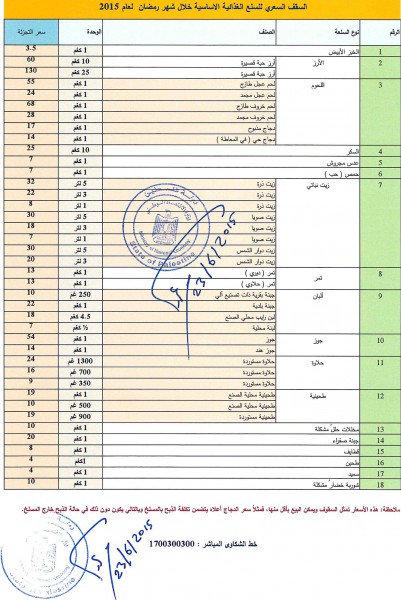 السقف السعري للسلع الغذائية الاساسية خلال شهر رمضان لعام 2015
نوع السلعة الصنف الوحدة سعر التجزئة
1 الخبز الأبيض 1 كغم 3.5
2 الأرز أرز حبة قصيرة 10 كغم 60
أرز حبة قصيرة 25 كغم 130
3 اللحوم لحم عجل طازج 1 كغم 55
لحم عجل مجمد 1 كغم 24
لحم خروف طازج 1 كغم 68
لحم خروف مجمد 1 كغم 28
دجاج مذبوح 1 كغم 17
دجاج حي ( في المعاطة ) 1 كغم 14
4 السكر 10 كغم 25
5 عدس مجروش 1 كغم 7
6 حمص ( حب ) 1 كغم 7
7 زيت نباتي زيت ذرة 5 لتر 32
زيت ذرة 3 لتر 22
زيت ذرة 1 لتر 8
زيت صويا 5 لتر 30
زيت صويا 3 لتر 18
زيت صويا 1 لتر 7
زيت دوار الشمس 5 لتر 30
زيت دوار الشمس 3 لتر 20
8 تمر تمر ( ديري ) 1 كغم 13
تمر ( حلاوي ) 1 كغم 13
9 ألبان جبنة بقرية ذات تصنيع آلي 250 غم 10
جبنة بلدية 1 كغم 22
لبن رايب محلي الصنع 4.5 كغم 18
لبنة محلية ½ كغم 7
10 جوز جوز 1 كغم 54
جوز هند 1 كغم 14
11 حلاوة حلاوة مستوردة 1300 غم 24
حلاوة مستوردة 700 غم 16
حلاوة مستوردة 350 غم 9
12 طحينية طحينية محلية الصنع 1 كغم 19
طحينية محلية الصنع 500 غم 10
طحينية مستوردة 900 غم 19
13 مخللات حلل مشكلة 1 كغم 10
14 جبنة صفراء 1 كغم 20
15 قطايف 1 كغم 8
16 طحين 1 كغم 4
17 سميد 1 كغم 4
18 شوربة خضار مشكلة 1 كغم 10
State of Palestine
23/6/2015
ملاحظة: هذه الأسعار تمثل السقوف ويمكن البيع بأقل منها، فمثلاً سعر الدجاج أعلاه يتضمن تكلفة الذبح بالمسلخ وبالتالي يكون دون ذلك في حالة الذبح خارج المسلخ.
خط الشكاوى المباشر : 1700300300
23/6/2015